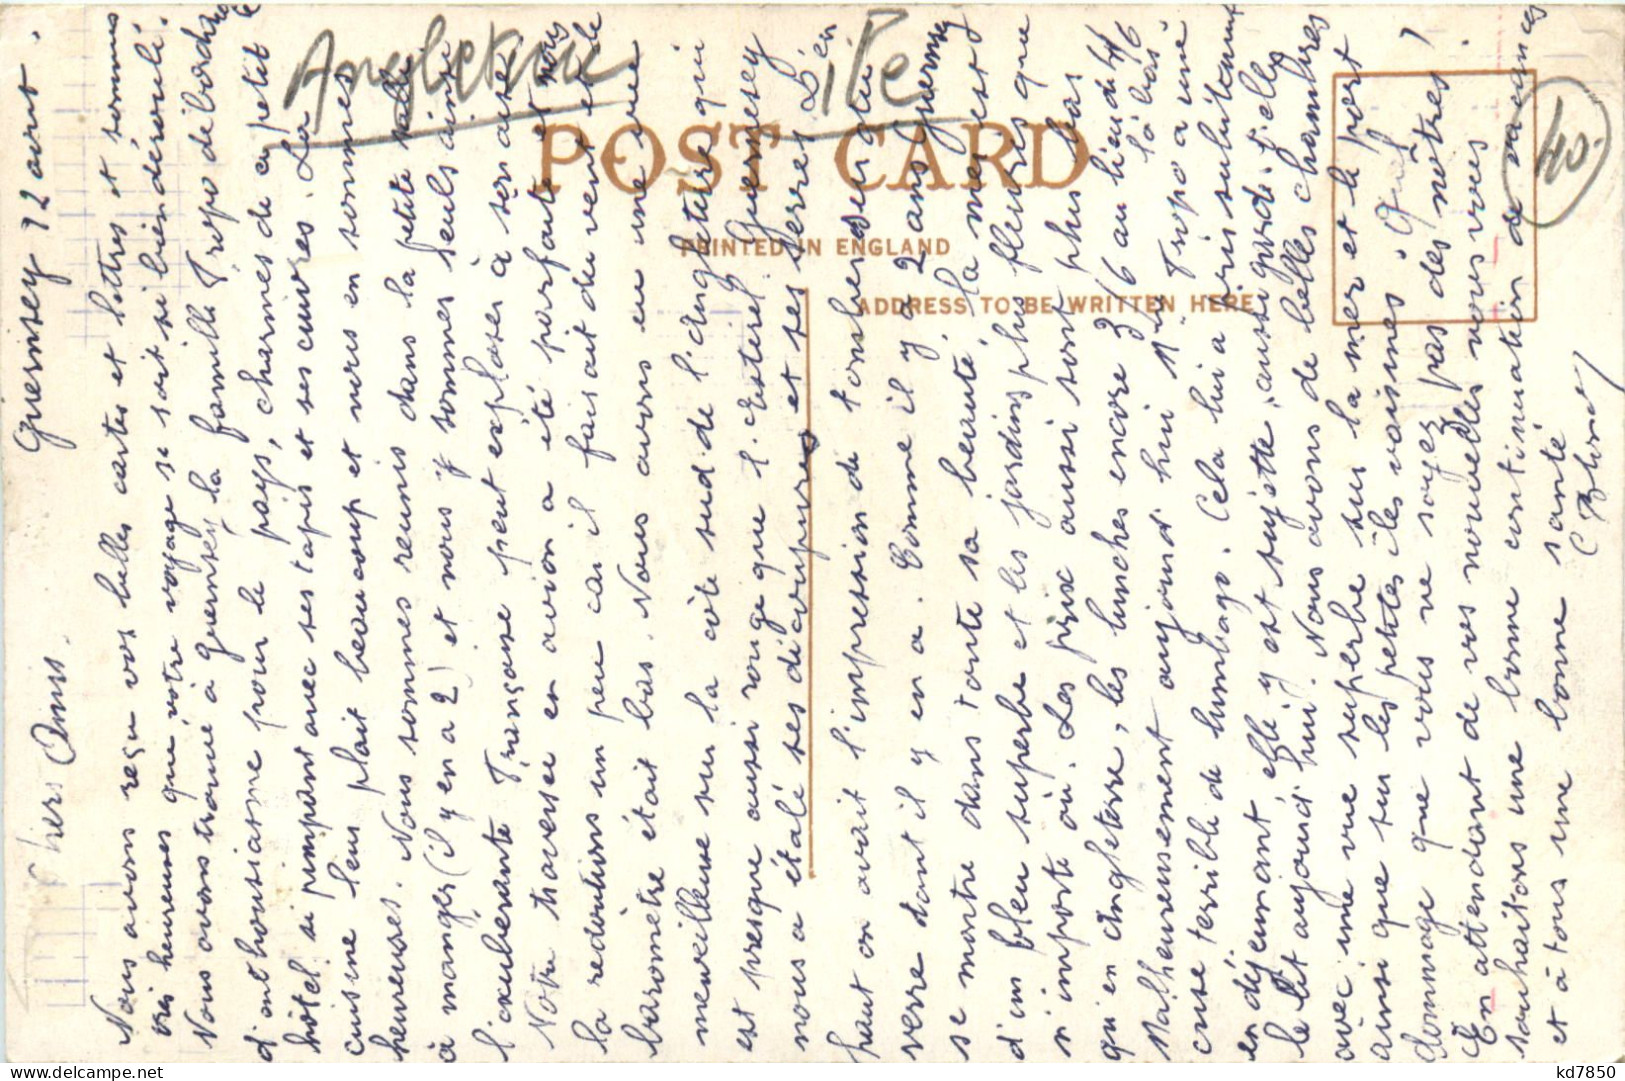 Angleterre
Ile
40.-
POST CARD
PRINTED IN ENGLAND
ADDRESS TO BE WRITTEN HERE
Guernsey 12 août.
Chers Amis.
Nous avons reçu vos belles cartes et lettres et sommes
très heureuses que votre voyage se soit si bien déroulé.
Nous avons trouvé à Guernsey la famille Tropo débordante
d'enthousiasme pour le pays, charmés de ce petit
hôtel si pimpant avec ses tapis et ses cuivres. La
cuisine leur plait beaucoup et nous en sommes
heureuses. Nous sommes réunis dans la petite salle
à manger (il y en a 2) et nous y sommes seuls ainsi
l'exubérante Françoise peut exploser à son aise.
Notre traversée en avion a été parfaite et nous
la redoutions un peu car il faisait du vent et le
baromètre était bas. Nous avons eu une vue
merveilleuse sur la côte sud de l'Angleterre qui
est presque aussi rouge que l'Esterel. Guernesey
nous a étalé ses découpures et ses serres. D'en
haut on avait l'impression de tomber sur du
verre tant il y en a. Comme il y a 2 ans Guernsey
se montre dans toute sa beauté, la mer est
d'un bleu superbe et les jardins plus fleuris que
n'importe où. Les prix aussi sont plus bas
qu'en Angleterre, les lunches encore 3/6 au lieu de 4/6 là bas
Malheureusement aujourd'hui Mlle Tropo a une
crise terrible de lumbago. Cela lui a pris subitement
en déjeunant elle y est sujette, aussi garde-t-elle
le lit aujourd'hui. Nous avons de belles chambres
avec une vue superbe sur la mer et le port
ainsi que sur les petites îles voisines. Quel
dommage que vous ne soyez pas des nôtres!
En attendant de vos nouvelles nous vous
souhaitons une bonne continuation de vacances
et à tous une bonne santé